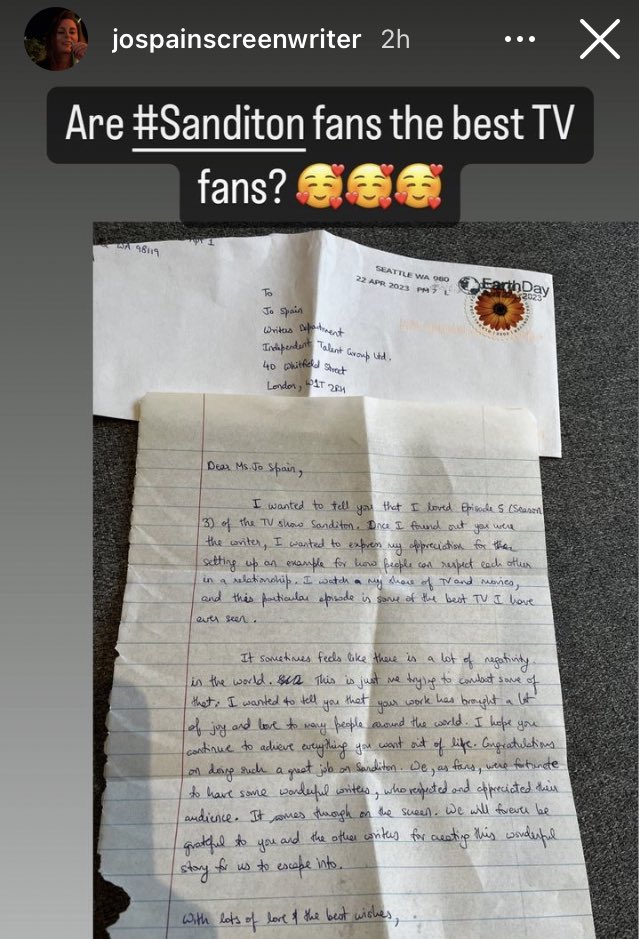 jospainscreenwriter 2h
Are #Sanditon fans the best TV
fans? 🥰🥰🥰
WA 98119
SEATTLE WA 980
22 APR 2023 PM 7 L
EarthDay
2023
To
Jo Spain
Writers Department
Independent Talent Group Ltd.
40 Whitfield Street
London, W1T 2RH
Dear Ms. Jo Spain,
I wanted to tell you that I loved Episode 5 (Season
3) of the TV show Sanditon. Once I found out you were
the writer, I wanted to express my appreciation for
setting up an example for how people can respect each other
in a relationship. I watch my share of TV and movies,
and this particular episode is some of the best TV I have
ever seen.
It sometimes feels like there is a lot of negativity
in the world. This is just me trying to combat some of
that. I wanted to tell you that your work has brought a lot
of joy and love to many people around the world. I hope you
continue to achieve everything you want out of life. Congratulations
on doing such a great job on Sanditon. We, as fans, were fortunate
to have some wonderful writers, who respected and appreciated their
audience. It comes through on the screen. We will forever be
grateful to you and the other writers for creating this wonderful
story for us to escape into.
With lots of love & the best wishes,